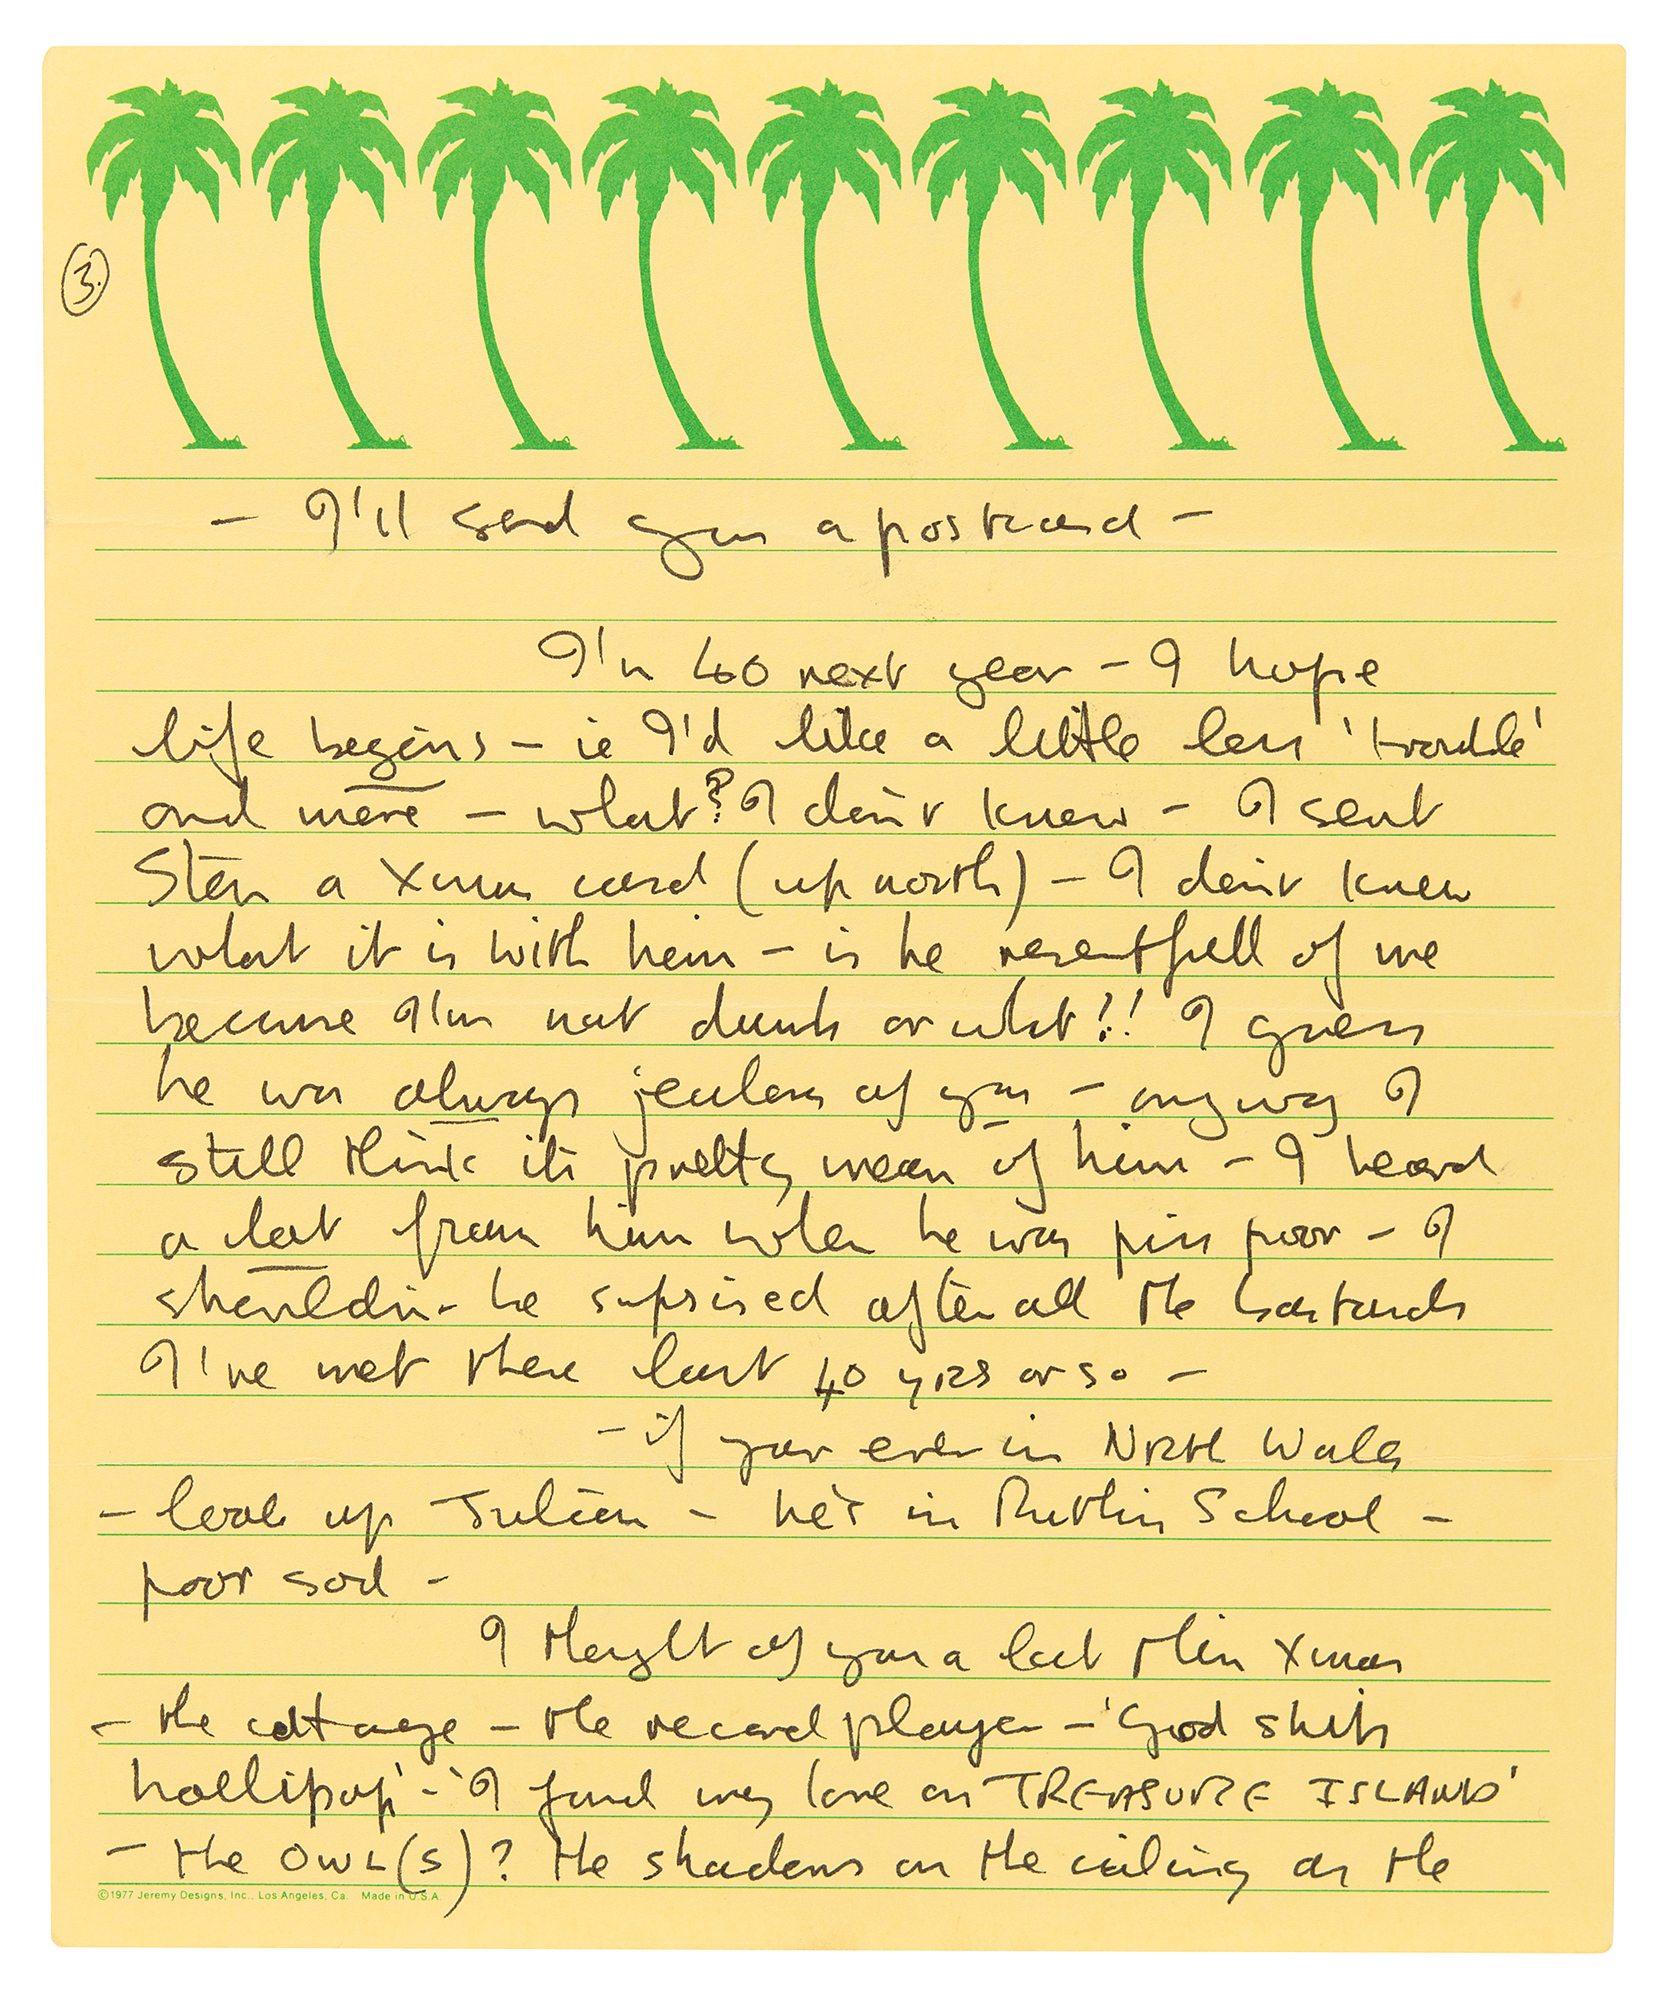 3.
- I'll send you a postcard -
I'm 40 next year - I hope
life begins - ie I'd like a little less 'trouble'
and more - what? I don't know - I sent
Stan a Xmas card (up north) - I don't know
what it is with him - is he resentfull of me
because I'm not drunk or what?! I guess
he was always jealous of you - anyway I
still think its pretty mean of him - I heard
a lot from him when he was piss poor - I
shouldn't be suprised after all the bastards
I've met these last 40 yrs or so -
- if your ever in North Wales
- look up Julian - he's in Ruthin School -
poor sod -
I thought of you a lot this Xmas
- the cottage - the record player - 'God shits
hollipop' - 'I found my love on TREASURE ISLAND'
- the OWL(S)? the shadows on the ceiling as the
©1977 Jeremy Designs, Inc., Los Angeles, Ca. Made in U.S.A.